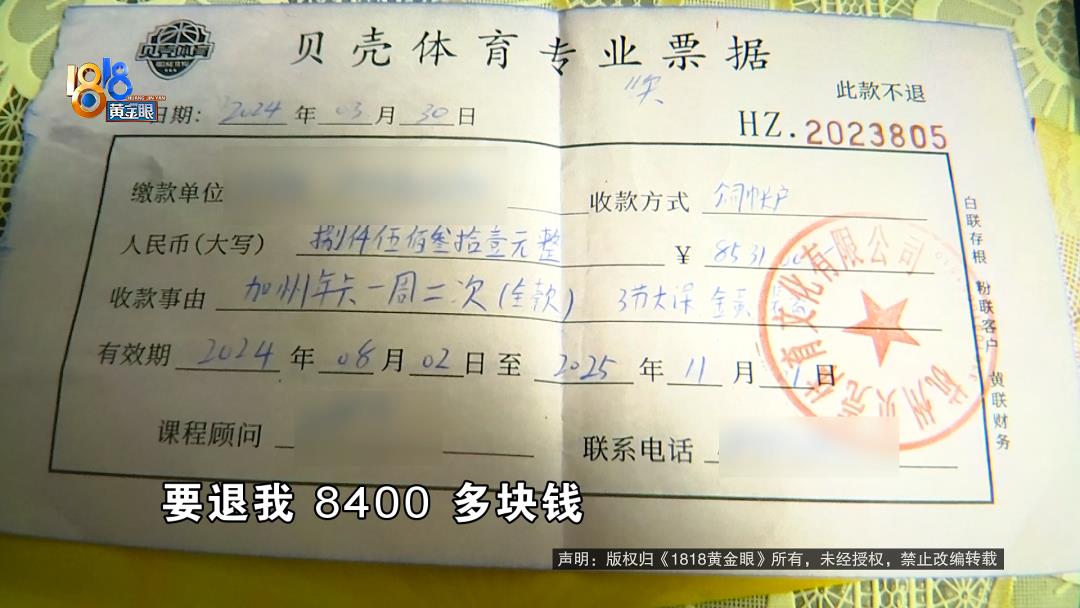 贝壳体育
贝壳体育专业票据
1818
黄金眼
此款不退
日期: 2024 年 03 月 30 日
HZ. 2023805
缴款单位
收款方式
人民币(大写) 捌仟伍佰叁拾壹元整 ¥ 8531
收款事由 加州年卡一周二次(全款)
有效期 2024 年 08 月 02 日 至 2025 年 11 月 1 日
课程顾问
联系电话
白联存根 粉联客户 黄联财务
要退我 8400 多块钱
声明：版权归《1818黄金眼》所有，未经授权，禁止改编转载